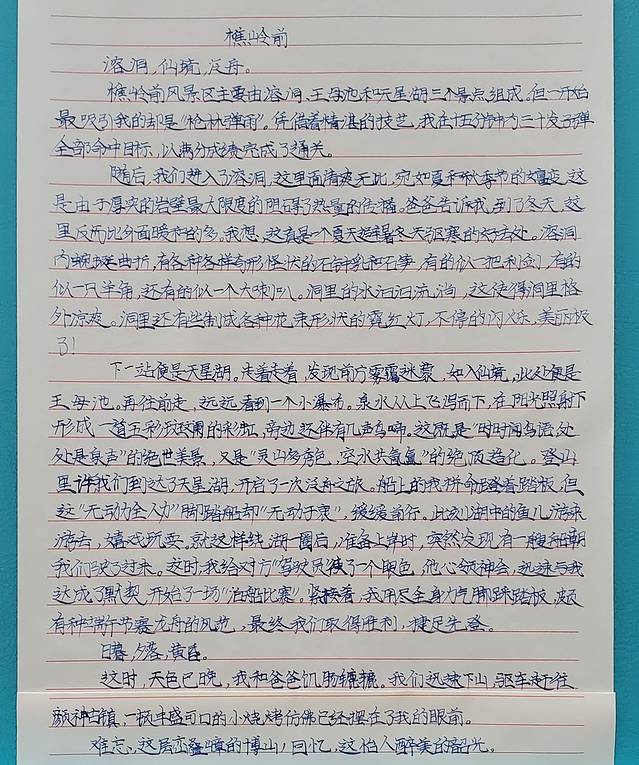 樵岭前
溶洞,仙境,泛舟。
樵岭前风景区主要由溶洞、王母池和天星湖三个景点组成。但一开始
最吸引我的却是“枪林弹雨”。凭借着精湛的技艺,我在十五分钟内三十发子弹
全部命中目标,以满分成绩完成了通关。
随后,我们进入了溶洞,这里面清爽无比,宛如夏和秋季节的嬗变,这
是由于厚实的岩壁最大限度的阻碍了热量的传播。爸爸告诉我,到了冬天,这
里反而比外面暖和的多。我想,这真是一个夏天避暑冬天驱寒的好去处。溶洞
内蜿蜒曲折,有各种各样奇形怪状的石钟乳和石笋,有的似一把利剑,有的
似一只羊角,还有的似一个大喇叭。洞里的水汩汩流淌,这使得洞里格
外凉爽。洞里还有些制成各种花朵形状的霓虹灯,不停的闪烁,美丽极
了!
下一站便是天星湖。走着走着,发现前方雾霭迷蒙,如入仙境,此处便是
王母池。再往前走,远远看到一个小瀑布。泉水从上飞泻而下,在阳光照射下
形成一道五彩斑斓的彩虹,旁边还伴有几声鸟啼。这就是“时时闻鸟语,处
处是泉声”的绝世美景,又是“灵山多秀色,空水共氤氲”的绝顶造化。登山
里许我们到达了天星湖,开启了一次泛舟之旅。船上的我拼命蹬着踏板,但
这“无动力全人力”脚踏船却“无动于衷”,缓缓前行。此刻湖中的鱼儿游来
游去,嬉戏玩耍。就这样绕湖一圈后,准备上岸时,突然发现有一艘船朝
我们驶了过来。这时,我给对方“驾驶员”使了个眼色,他心领神会,迅速与我
达成了默契,开始了一场“泊船比赛”。紧接着,我用尽全身力气脚踩踏板,颇
有种端午节赛龙舟的风范,最终我们取得胜利,捷足先登。
日暮,夕落,黄昏。
这时,天色已晚,我和爸爸饥肠辘辘。我们迅速下山,驱车赶往
颜神古镇,一板丰盛可口的小烧烤仿佛已经摆在了我的眼前。
难忘,这层峦叠嶂的博山;回忆,这怡人醉美的韶光。